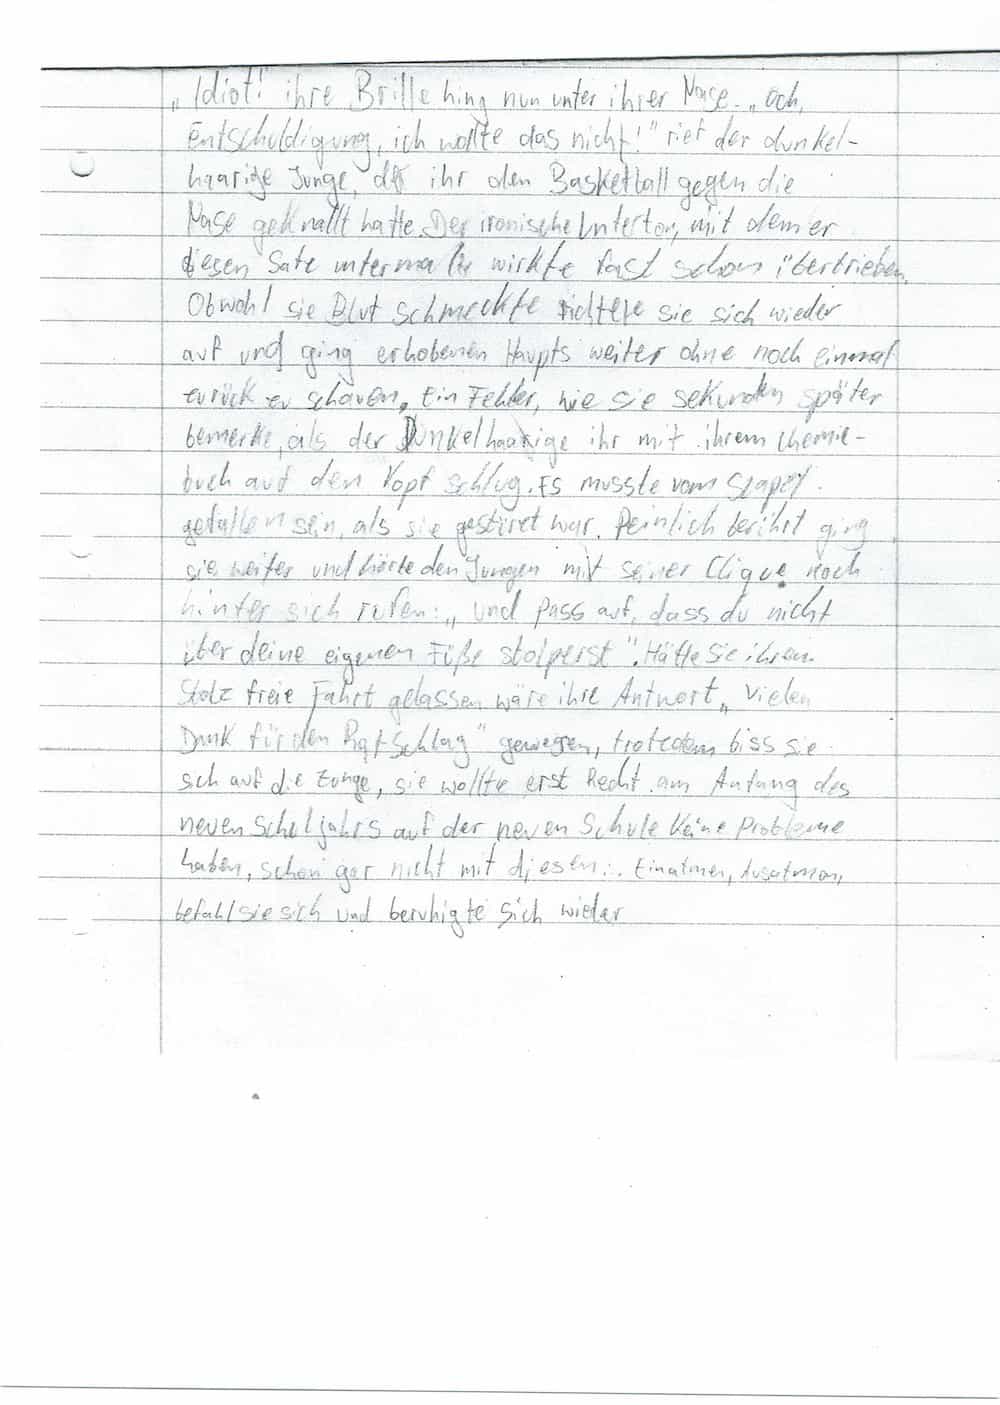 „Idiot!" ihre Brille hing nun unter ihrer Nase. „Och,
Entschuldigung, ich wollte das nicht!" rief der dunkel-
haarige Junge, der ihr den Basketball gegen die
Nase geknallt hatte. Der ironische Unterton, mit dem er
diesen Satz untermalte wirkte fast schon übertrieben.
Obwohl sie Blut schmeckte richtete sie sich wieder
auf und ging erhobenen Haupts weiter ohne noch einmal
zurück zu schauen. Ein Fehler, wie sie sekunden später
bemerkte, als der Dunkelhaarige ihr mit ihrem Chemie-
buch auf den Kopf schlug. Es musste vom Stapel
gefallen sein, als sie gestürzt war. Peinlich berührt ging
sie weiter und hörte den Jungen mit seiner Clique noch
hinter sich rufen: „und pass auf, dass du nicht
über deine eigenen Füße stolperst". Hätte sie ihren
Stolz freie Fahrt gelassen wäre ihre Antwort „Vielen
Dank für den Ratschlag" gewesen, trotzdem biss sie
sich auf die Zunge, sie wollte erst Recht am Anfang des
neuen Schuljahrs auf der neuen Schule keine Probleme
haben, schon gar nicht mit diesen... Einatmen, Ausatmen,
befahl sie sich und beruhigte sich wieder